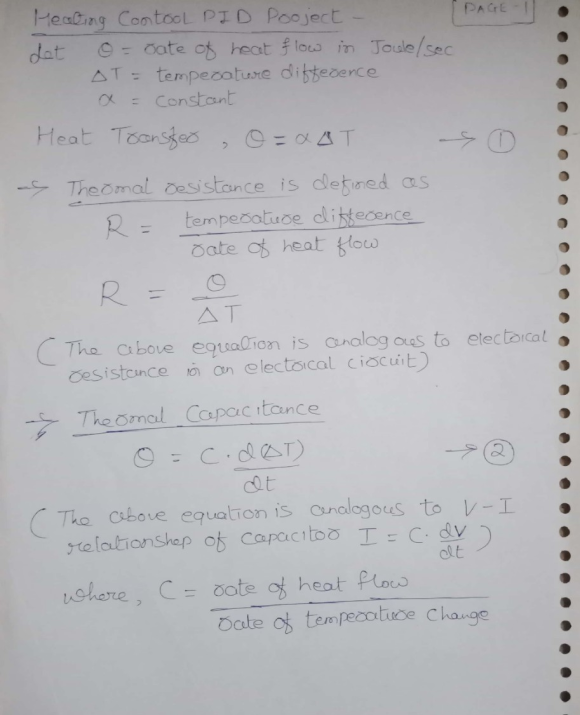 Heating Control PID Project -
PAGE-1
let θ = rate of heat flow in Joule/sec
ΔT = temperature difference
α = constant
Heat Transfer, θ = α ΔT → ①
→ Thermal resistance is defined as
R = temperature difference
rate of heat flow
R = θ
ΔT
(The above equation is analogous to electrical
resistance in an electrical circuit)
→ Thermal Capacitance
θ = C. d(ΔT) → ②
dt
(The above equation is analogous to V-I
relationship of capacitor I = C. dv/dt)
where, C = rate of heat flow
rate of temperature change